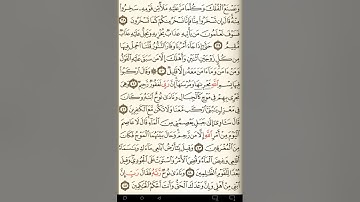 وَيَصْنَعُ ٱلْفُلْكَ وَكُلَّمَا مَرَّ عَلَيْهِ مَلَأٌ مِّن قَوْمِهِۦ سَخِرُوا۟
مِنْهُ قَالَ إِن تَسْخَرُوا۟ مِنَّا فَإِنَّا نَسْخَرُ مِنكُمْ كَمَا تَسْخَرُونَ ٣٨
فَسَوْفَ تَعْلَمُونَ مَن يَأْتِيهِ عَذَابٌ يُخْزِيهِ وَيَحِلُّ عَلَيْهِ عَذَابٌ
مُّقِيمٌ ٣٩ حَتَّىٰٓ إِذَا جَآءَ أَمْرُنَا وَفَارَ ٱلتَّنُّورُ قُلْنَا ٱحْمِلْ فِيهَا
مِن كُلٍّ زَوْجَيْنِ ٱثْنَيْنِ وَأَهْلَكَ إِلَّا مَن سَبَقَ عَلَيْهِ
ٱلْقَوْلُ وَمَنْ ءَامَنَ وَمَآ ءَامَنَ مَعَهُۥٓ إِلَّا قَلِيلٌ ٤٠ وَقَالَ ٱرْكَبُوا۟
فِيهَا بِسْمِ ٱللَّهِ مَجْر۪ىٰهَا وَمُرْسَىٰهَآ إِنَّ رَبِّى لَغَفُورٌ رَّحِيمٌ ٤١ وَهِىَ
تَجْرِى بِهِمْ فِى مَوْجٍ كَٱلْجِبَالِ وَنَادَىٰ نُوحٌ ٱبْنَهُۥ وَكَانَ
فِى مَعْزِلٍ يَٰبُنَىَّ ٱرْكَب مَّعَنَا وَلَا تَكُن مَّعَ ٱلْكَٰفِرِينَ ٤٢
قَالَ سَـَٔاوِىٓ إِلَىٰ جَبَلٍ يَعْصِمُنِى مِنَ ٱلْمَآءِ قَالَ لَا عَاصِمَ
ٱلْيَوْمَ مِنْ أَمْرِ ٱللَّهِ إِلَّا مَن رَّحِمَ وَحَالَ بَيْنَهُمَا ٱلْمَوْجُ فَكَانَ
مِنَ ٱلْمُغْرَقِينَ ٤٣ وَقِيلَ يَٰٓأَرْضُ ٱبْلَعِى مَآءَكِ وَيَٰسَمَآءُ
أَقْلِعِى وَغِيضَ ٱلْمَآءُ وَقُضِىَ ٱلْأَمْرُ وَٱسْتَوَتْ عَلَى ٱلْجُودِىِّ وَقِيلَ
بُعْدًا لِّلْقَوْمِ ٱلظَّٰلِمِينَ ٤٤ وَنَادَىٰ نُوحٌ رَّبَّهُۥ فَقَالَ رَبِّ إِنَّ
ٱبْنِى مِنْ أَهْلِى وَإِنَّ وَعْدَكَ ٱلْحَقُّ وَأَنتَ أَحْكَمُ ٱلْحَٰكِمِينَ ٤٥